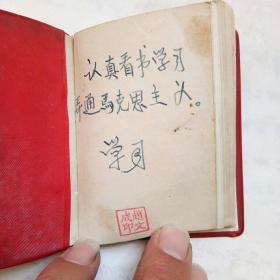 认真看书学习
弄通馬克思主义。
学习
趙文
成印